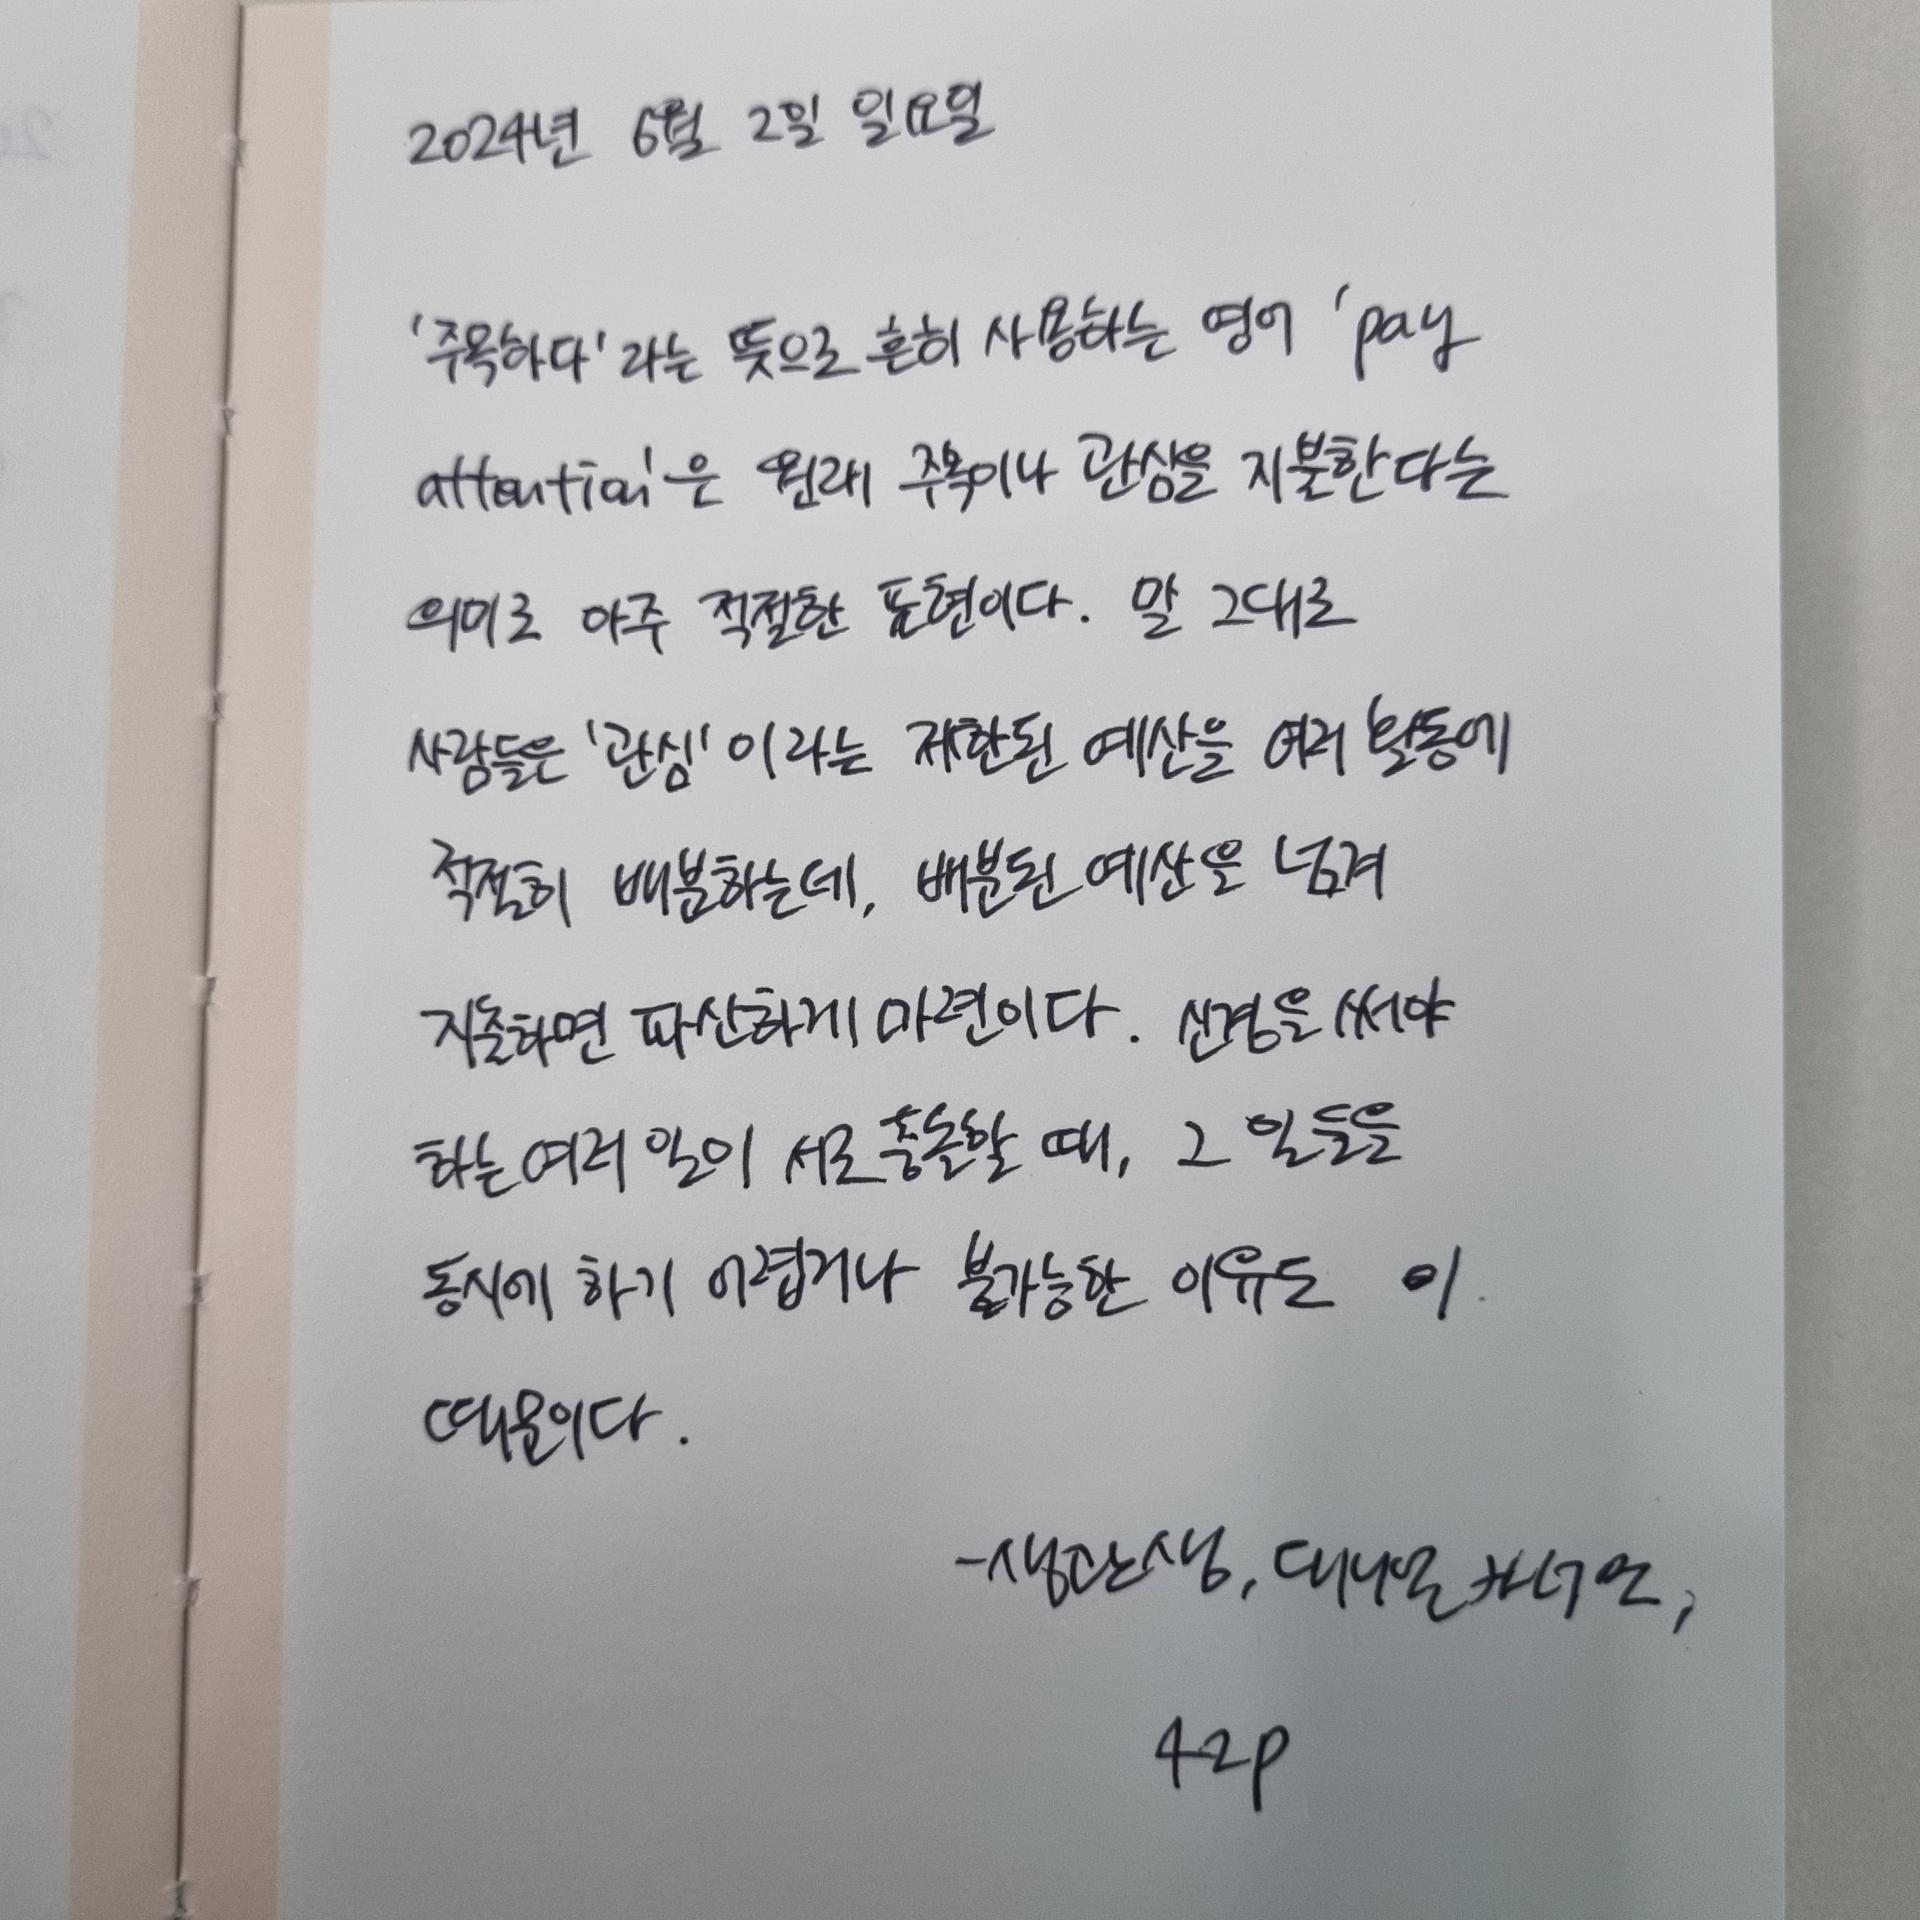 2024년 6월 2일 일요일
'주목하다'라는 뜻으로 흔히 사용하는 영어 'pay
attention'은 원래 주목이나 관심을 지불한다는
의미로 아주 적절한 표현이다. 말 그대로
사람들은 '관심'이라는 제한된 예산을 여러 활동에
적절히 배분하는데, 배분된 예산을 넘겨
지출하면 파산하게 마련이다. 신경을 써야
하는 여러 일이 서로 충돌할 때, 그 일들을
동시에 하기 어렵거나 불가능한 이유도 이
때문이다.
-생각에 관한 생각, 대니얼 카너먼,
42p